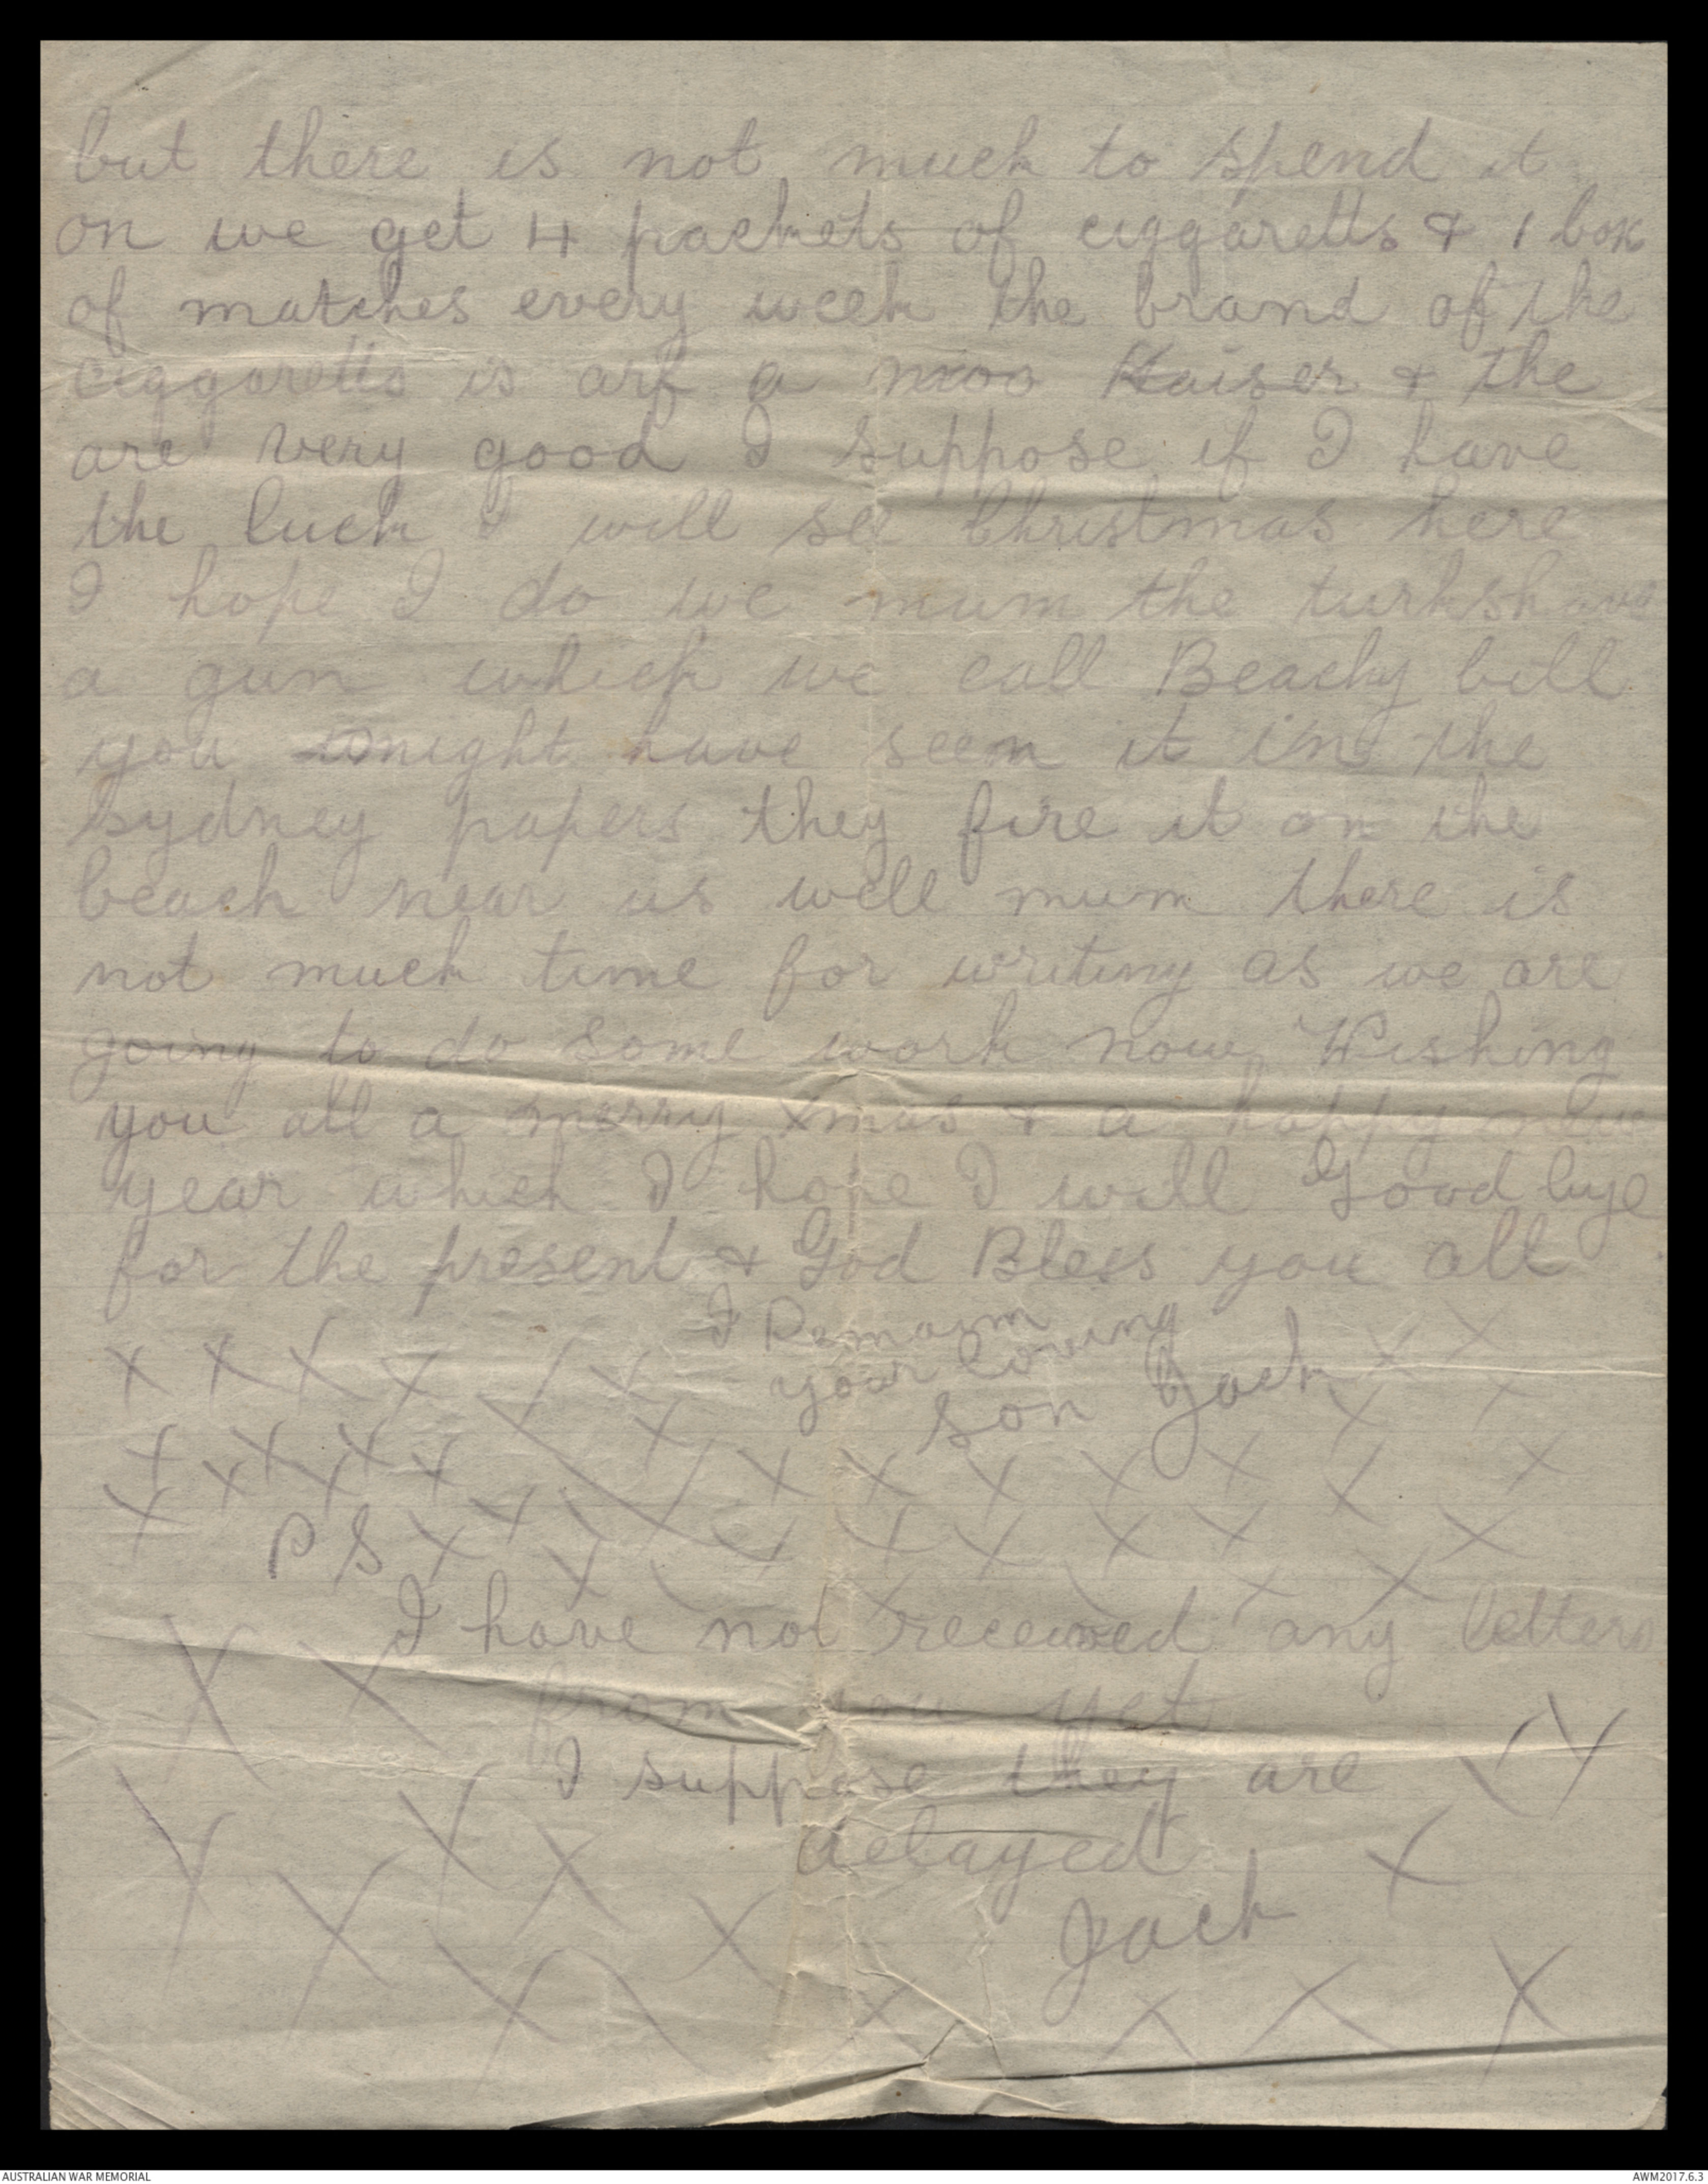 but there is not much to spend it
on we get 4 packets of ciggaretts & 1 box
of matches every week the brand of the
ciggaretts is arf a moo Kaiser & the
are very good I suppose if I have
the luck I will see Christmas here
I hope I do we mum the turks have
a gun which we call Beachy bill
you might have seem it in the
sydney papers they fire it on the
beach near us well mum there is
not much time for writing as we are
going to do some work now Wishing
you all a merry xmas & a happy new
year which I hope I will Good bye
for the present & God Bless you all
I Remain
your loving
son Jack
x x x x x x x x
x x x x x x x x x x x x x
P S
I have not received any letters
from you yet
I suppose they are
delayed
Jack
x x x x x x x
AUSTRALIAN WAR MEMORIAL
AWM2017.6.3